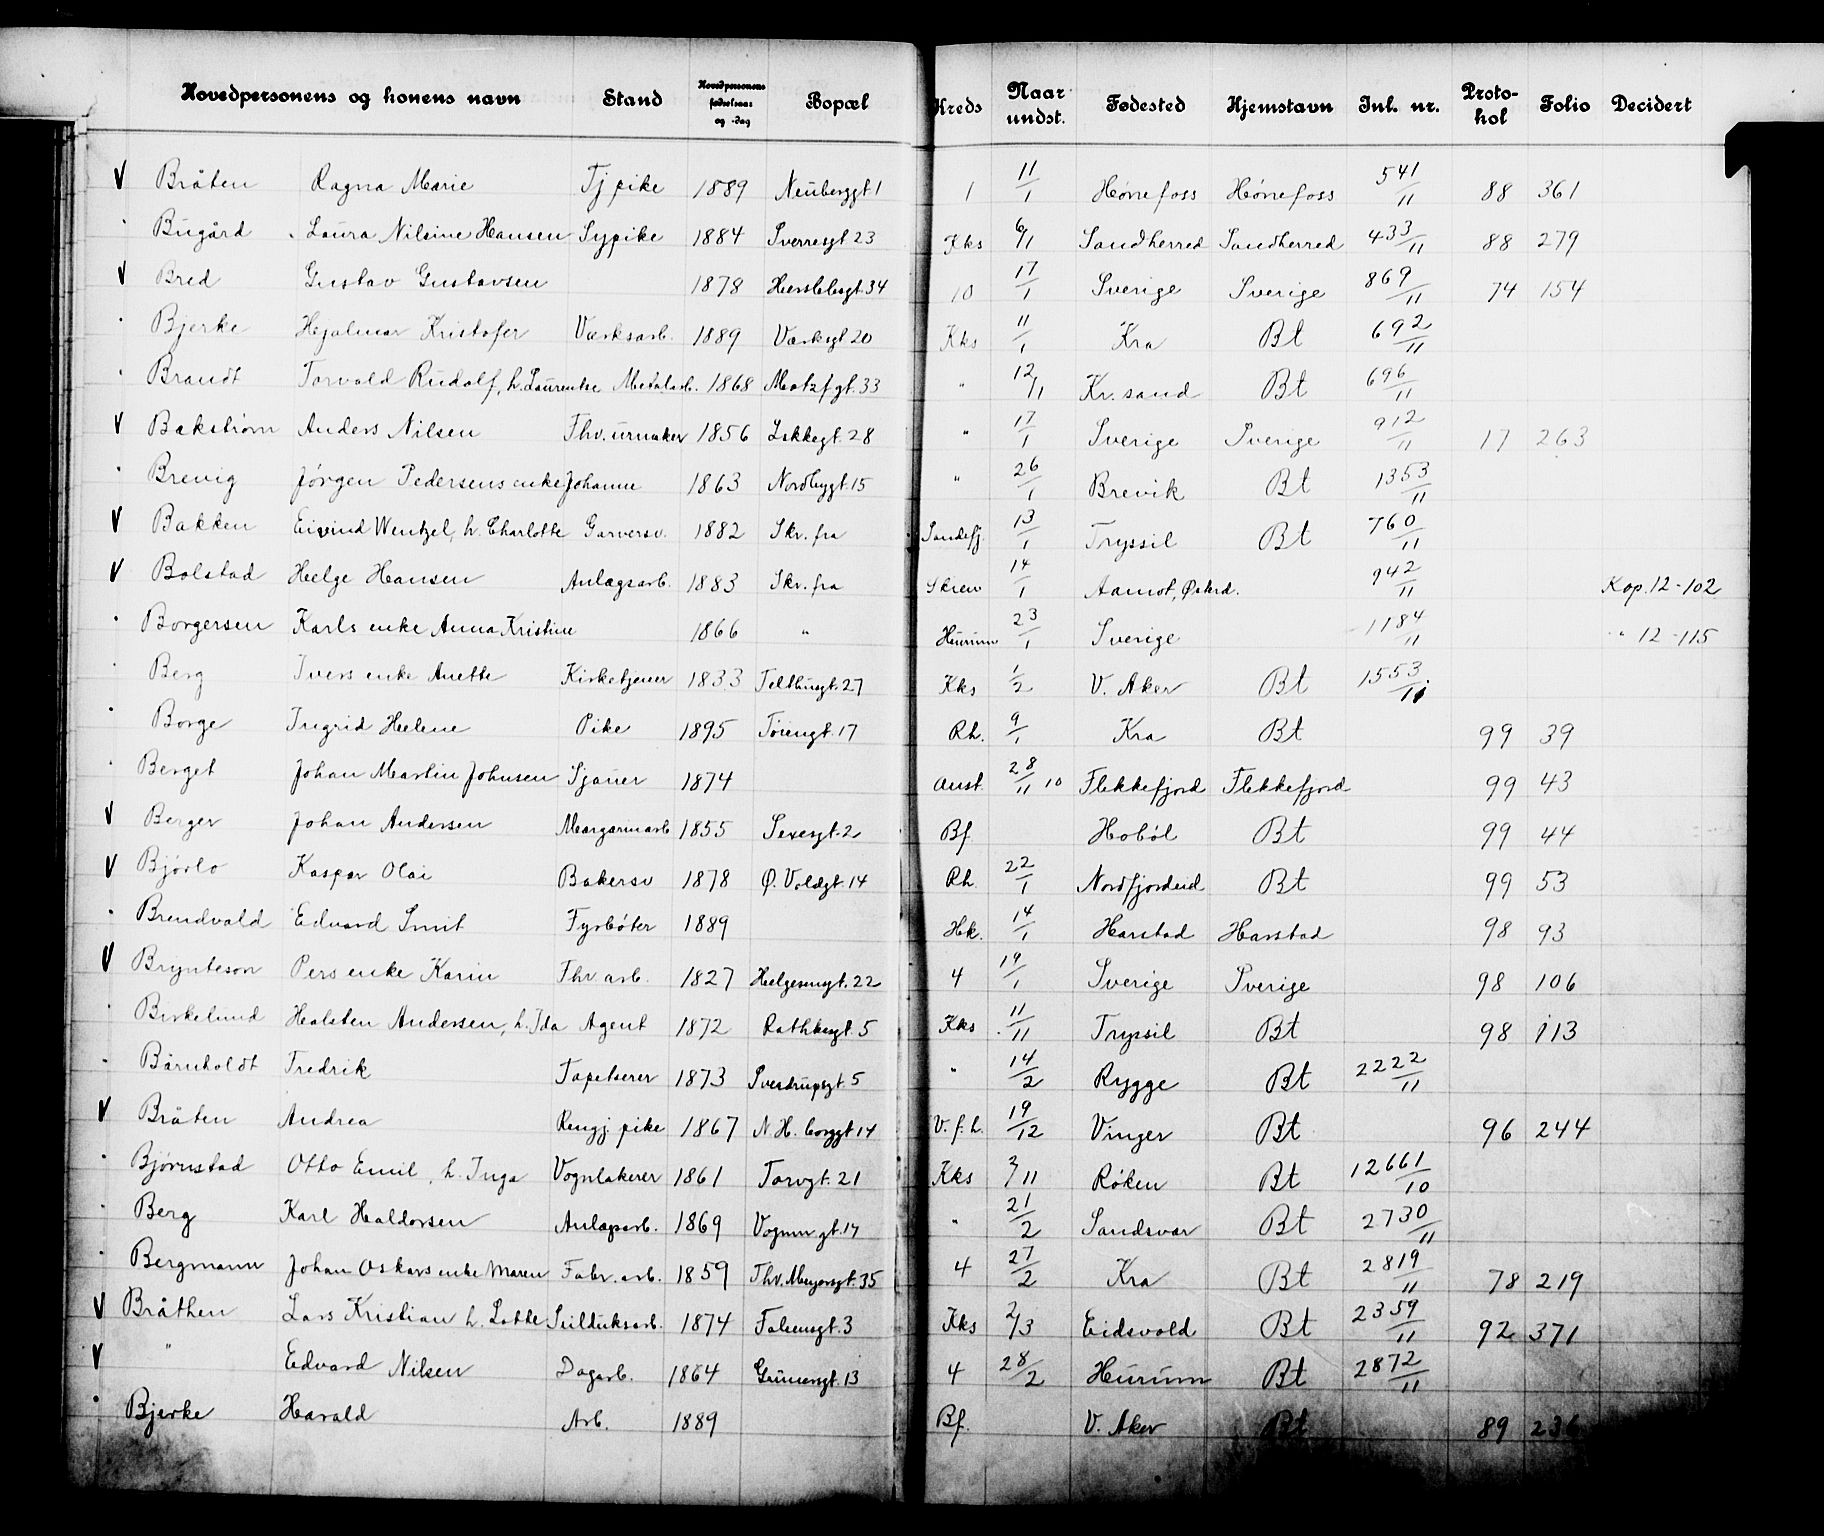 Hovedpersonens og konens navn Stand Hovedpersonens fødselsaar og -dag Bopæl Kreds Naar undst. Fødested Hjemstavn Inl. nr. Proto-kol Folio Decidert
V Bråten Ragna Marie Tj pike 1889 Neuberggt 1 1 11/1 Hønefoss Hønefoss 541/11 88 361
Bugård Laura Nilsine Hansen Sypike 1884 Sverresgt 23 Kks 6/1 Sandherred Sandherred 433/11 88 279
V Bred Gustav Gustavsen 1878 Herslebsgt. 34 10 17/1 Sverige Sverige 869/11 74 154
Bjerke Hjalmar Kristofer Værksarb. 1889 Værksgt 20 Kks 11/1 Kra Bt 692/11
Brandt Torvald Rudolf, h. Laurentse Metalarb. 1868 Motzfgt. 33 " 12/1 Kr. sand Bt 696/11
V Bakstrøm Anders Nilsen Fhv. urmaker 1856 Løkkegt. 28 " 17/1 Sverige Sverige 912/11 17 263
Brevig Jørgen Pedersens enke Johanne 1863 Nordbygt. 15 " 26/1 Brevik Bt 1353/11
V Bakken Eivind Wentzel, h. Charlotte Garversv. 1882 Skr. fra Sandefj. 13/1 Tryssil Bt 760/11
V Bolstad Helge Hansen Anlægsarb. 1883 Skr. fra Skien 14/1 Aamot, Østerd. 942/11 Kop. 12-102
Borgersen Karls enke Anna Kristine 1866 " Hurum 23/1 Sverige 1184/11 " 12-115
Berg Ivers enke Anette Kirketjener 1833 Telthusgt. 27 Kks 1/2 V. Aker Bt 1553/11
Borge Ingrid Helene Pike 1895 Tøiengt. 17 Rh. 9/1 Kra Bt 99 39
Berget Johan Martin Johnsen Sjauer 1874 Aust. 28/11 10 Flekkefjord Flekkefjord 99 43
V Berger Johan Andersen Margarinarb 1855 Sexesgt. 2 Bf. Hobøl Bt 99 44
V Bjørlo Kaspar Olai Bakersv 1878 Ø. Voldgt. 14 Rh. 22/1 Nordfjordeid Bt 99 53
Brendvald Edvard Smit Fyrbøter 1889 Hk. 14/1 Harstad Harstad 98 93
V Brynteson Pers enke Karin Fhv. arb. 1827 Helgesengt. 22 4 19/1 Sverige Sverige 98 106
Birkelund Halsten Andersen, h. Ida Agent 1872 Rathkesgt. 5 Kks 11/11 Tryssil Bt 98 113
Bårnholdt Fredrik Tapetserer 1873 Sverdrupsgt. 5 " 14/2 Rygge Bt 2222/11
V Bråten Andrea Rengj. pike 1867 N H. borggt 14 V. f. h. 19/12 Vinger Bt 96 244
Bjørnstad Otto Emil, h. Inga Vognlakerer 1861 Torvgt. 21 Kks 3/11 Røken Bt 12661/10
Berg Karl Haldorsen Anlægsarb. 1869 Vognm gt. 17 " 21/2 Sandsvær Bt 2730/11
Bergmann Johan Oskars enke Maren Fabr. arb. 1859 Thv. Meyersgt. 35 4 27/2 Kra Bt 2819/11 78 219
V Bråthen Lars Kristian h. Lotte Seildukarb. 1874 Falsensgt. 3 Kks 2/3 Eidsvold Bt 2359/11 92 371
V " Edvard Nilsen Dagarb. 1864 Grünersgt. 13 4 28/2 Hurum Bt 2872/11
Bjerke Harald Arb. 1889 Bf. V. Aker Bt 89 236